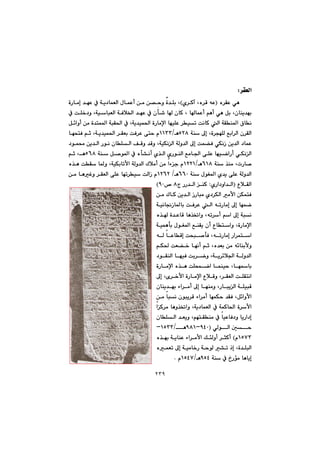 العقر:
هي عقره (عه قره، أكري)، بلدة وحصن من أعمال العمادية في عهد إمارة
بهدينان، بل هي أهم أعمالها ؛ كان لها شأن في عهد الخلافة العباسية، ودخلت في
نطاق المنطقة التي كانت تسيطر عليها الإمارة الحميدية، في الحقبة الممتدة من أوائل
القرن الرابع للهجرة، إلى سنة ٥٢٨هـ/١١٣٣م حتى عرفت بعقر الحميدية، ثم فتحها
عماد الدين زنكي فضمت إلى الدولة الزنكية، وقد وقف السلطان نور الدين محمود
الزنكي أراضيها على الجامع النوري الذي أنشأه في الموصل سنة ٥٦٨هـ، ثم
صارت منذ سنة ٦١٨هـ/١٢٢١م جزءاً من أملاك الدولة الأتابكية، ولما سقطت هذه
الدولة على يدي المغول سنة ٦٦٠هـ/ ١٢٦٢م زالت سيطرتها على العقر وغيرها من
القلاع (الداوداري: كنز الدرر ج٨ ص٩٠)
فتمكن الأمير الكردي مبارز الدين كاك من
ضمها إلى إمارته التي عرفت بالمازنجانية
نسبة إلى اسم أسرته، واتخذها قاعدة لهذه
الإمارة، واستطاع أن يقنع المغول بأهمية
استمرار إمارته، فأصبحت إقطاعاً له
ولأبنائه من بعده، ثم أنها خضعت لحكم
الدولة الجلائرية، وضربت فيها النقود
باسمها، حينما اضمحلت هذه الإمارة
انتقلت العقر، وقلاع الإمارة الأخرى، إلى
قبيلة الزيبار، ومنها إلى أمراء بهدينان
الأوائل، فقد حكمها أمراء قريبون نسباً من
الأسرة الحاكمة في العمادية، واتخذوها مركزاً
إدارياً ودفاعياً في منطقتهم، ويعد السلطان
حسين الولي (٩٤٠-٩٨١هـ/١٥٣٣-
١٥٧٣م) أكثر أولئك الأمراء عناية بهذه
البلدة، إذ تشير لوحة رخامية إلى تعميره
إياها مؤرخ في سنة ٩٥٤هـ/١٥٤٧م .
٢٣٩